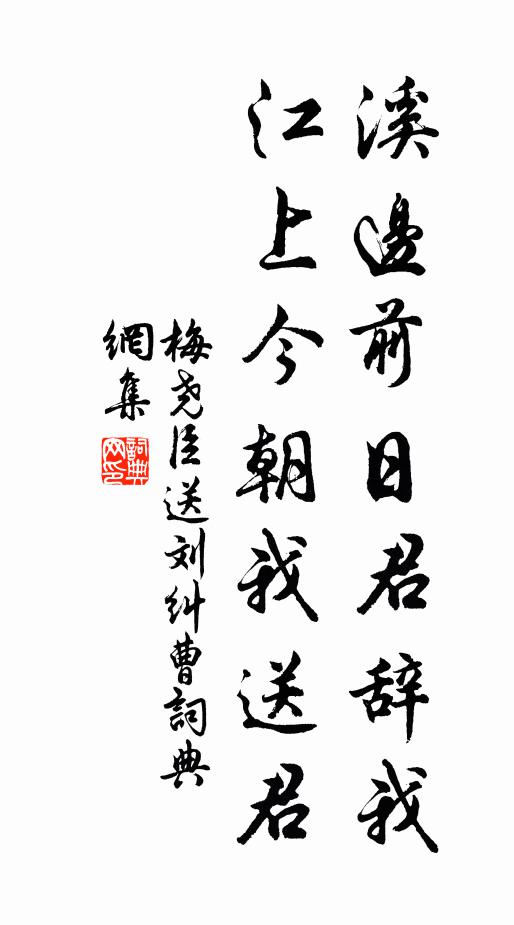 溪邊前日君辞我
江上今朝我送君
梅尧臣送刘纠曹詞典
網集
詞典網印